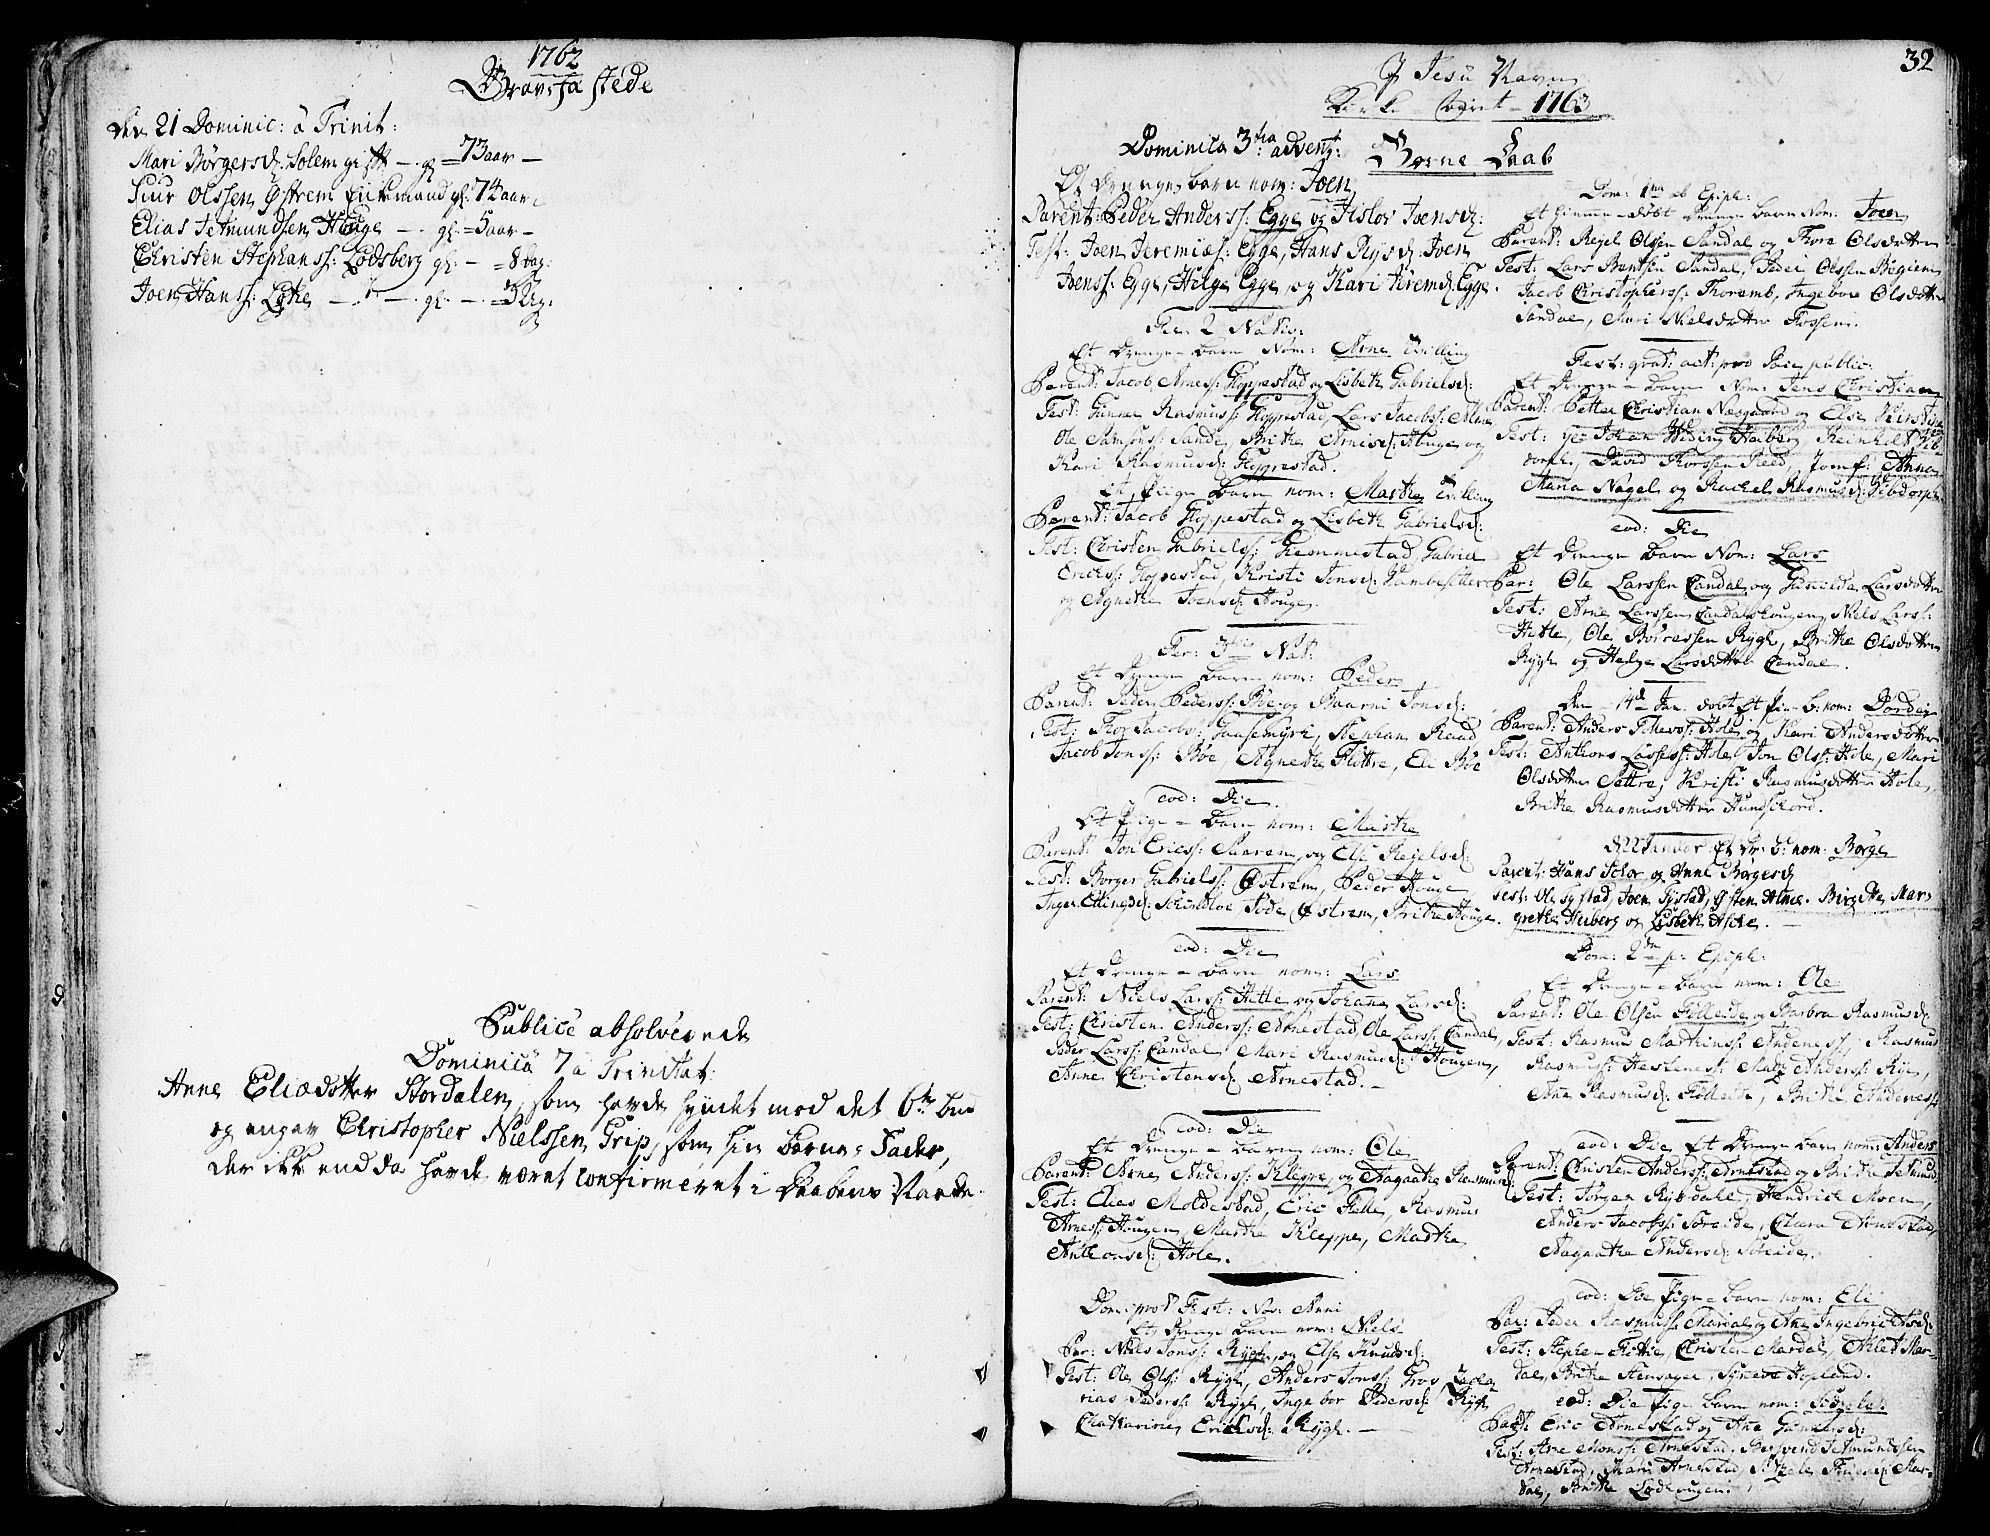 1762
Gravfæstede
Den 21 Dominic: à Trinit:
Mari Børgersd: Solem gift - gl = 73 aar -
Siur Olssen Østrem Enkemand gl: 74 aar:
Elias Jetmundsen Houge - gl: = 5 aar -
Christen Stephanss: Lodsberg gl: - = 8 dag:
Joen Hanss: Lote - gl: -
Publicè absolverede
Dominica 7 à Trinitat:
Anne Eliædotter Stordalen, som havde syndet mod det 6te bud
og angav Christopher Nielssen Grip, som sin Barne-Fader,
der ikke endda havde været confirmeret i Daabens Naade.
32
J Jesu Navn
Kirke-Aaret - 1763
Dominica 3tia advent: Børne Daab
Et Drenge barn nom: Joen
Parent: Peder Anderss: Egge og Sislov Joensd:
Test: Joen Jeremiæs: Egge, Hans Rysd: Joen
Joenss: Egge, Helge Egge, og Kari Iversd: Egge.
Fer: 2 Nativ:
Et Drenge-barn Nom: Arne Tvilling
Parent: Jacob Arness: Hoppestad og Lisbeth Gabrielsd:
Test: Gunnar Rasmuss: Hoppestad, Lars Jacobs: Alme
Ole Samsons: Sande, Brithe Arnesd: Houge og
Kari Rasmusd: Hoppestad.
Et Pige Barn nom: Marthe Tvilling
Parent: Jacob Hoppestad og Lisbeth Gabrielsd:
Test: Christen Gabriels: Hemmestad, Gabriel
Ericks: Hoppestad, Kristi Jonsd:
og Agnethe Joensd: Houge.
Fer: 3tia Nat:
Et Drenge barn nom: Peder
Parent: Peder Peders: Bøe og Baarni Jonsd:
Test: Thor Jacobs: Gaasemyre, Stephan Raad
Jacob Jons: Bøe, Agnethe Flottre, Eli Bøe
eod: Die.
Et Pige-barn nom: Marthe
Parent: Jon Erics: Saarem, og Else Reyelsd:
Test: Børger Gabriels: Østrem, Peder Houge,
Inger Ellingsd: Østrem, Brithe Houge.
eod: Die
Et Drenge-barn nom: Lars
Parent: Niels Lars: Hetle og Johane Larsd:
Test: Christen Anders: Arnestad, Ole Lars: Candal,
Peder Lars: Candal, Mari Rasmusd: Hougen,
Anne Christensd: Arnestad. -
eod: Die
Et Drenge-barn nom: Ole
Parent: Arne Anders: Kleppe, og Aagaathe Rasmusd:
Test: Elias Moldestad, Eric Felle, Rasmus
Arness: Hougen, Marthe Kleppe, Marthe
Anthonsd: Hole.
Dom: prox Fest: Nov: Anni
Et Drenge barn nom: Niels
Par: Niels Jonss: Rygh, og Else Knudsd:
Test: Ole Ols: Rygh, Anders Jonss: Grov, Zacha
rias Peders: Rygh, Ingebor Pedersd: Rygh
Chatharine Ericksd: Rygh. -
Dom: 1ma ab Epiph:
Et hiemme-døbt Drenge barn Nom: Joen
Parent: Reyel Olsen Sandal og Thora Olsdotter
Test: Lars Bentsen Sandal, Peder Olssen Bøgiem
Jacob Christopherss: Thoremb, Ingebore Olsdotter
Sandal, Mari Nielsdotter Fossem.
Fest: grat: act: pro Pace public:
Et Drenge-barn Nom: Jens Christian
Parent: Petter Christian Næsgaard og Else Kirstine
Test: Johan Heiberg, Reinholt
dorph, David Thorssen Reed, Jomf: Anna
Maria Nagel og Rachel Rasmusd: Hibdorph
eod: Die
Et Drenge barn Nom: Lars
Par: Ole Larssen Candal og Gunilda Larsdotter
Test: Arne Larssen Candalshougen, Niels Lars:
Hetle, Ole Børressen Rygh, Brithe Olsdotter
Rygh og Helge Larsdotter Candal.
den 14de Jan døbt Et Pige b: nom: Dordei
Parent: Anders Tollevs: Hole og Kari Andersdotter
Test: Anthons Lasses: Hole, Jon Ols: Hole, Mari
Olsdotter Settre, Kristi Rasmusdotter Hole,
Brithe Rasmusdotter Hundskord.
Et Dr: b: nom: Børge
Parent: Hans Solor og Anne Børgesd
Test: Ole Systad, Joen Systad, Østen Alme. Birgitte Mar-
grethe Heiberg og Lisbeth Aske. -
Dom: 2den p: Epiph:
Et Drenge-barn nom: Ole
Parent: Ole Olsen Føllside og Barbra Rasmusd:
Test: Rasmus Mathins: Andenes, Rasmus
Rasmus: Hestenes, Mads Anders: Røe,
Ane Rasmusd: Føllside, Brithe Andenes
eod: Die Et Drenge barn nom: Anders
Parent: Christen Anders: Arnestad og Brithe Jetmunds
Test: Jørgen Rygsdale, Hendrick Moen,
Anders Jacobs: Søreide, Clara Arnestad,
Aagaathe Andersd: Søreide.
eod: Die Pige-barn nom: Eli
Par: Peder Rasmuss: Mardal og Ane Ingebrichtsd:
Test: Stephen Flottre, Christen Mardal, Ahlet Mar-
dal, Brithe Hopland.
eod: Die Pige barn nom:
Par: Eric Arnestad og Ane Gunnersd:
Test: Arne Mons: Arnestad, Jetmundssen
Arnestad, Mari Arnestad, Mar-
dal, Brithe Lodeougen.